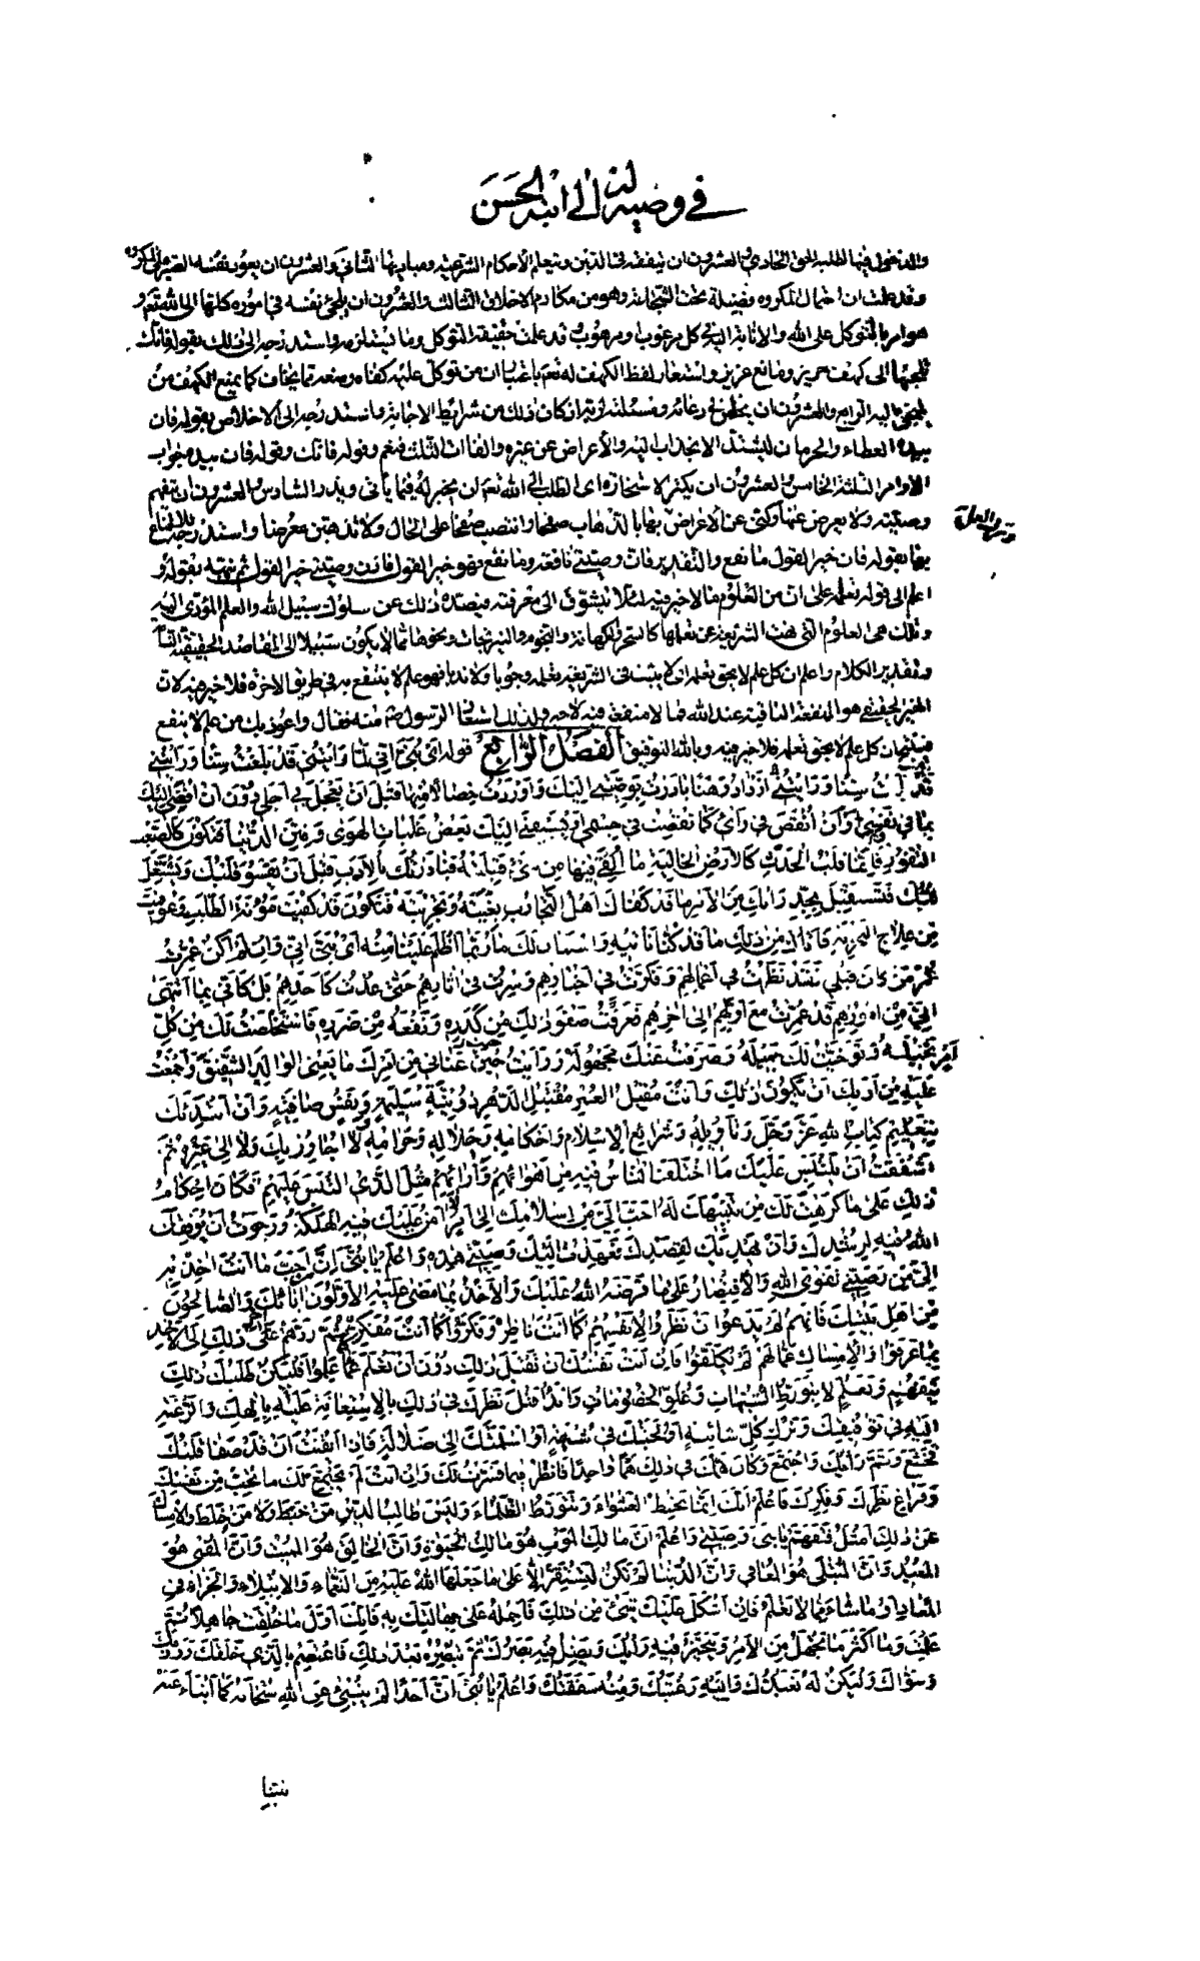 في وصيته له إلى ابنه الحسن
فيها لطلب الحق الحادي والعشرون ان يتفقه في الدين ويتعلم الاحكام الشرعية ومباديها الثاني والعشرون ان يعود نفسه الصبر على المكروه
وقد علمت ان احتمال المكروه فضيلة تحت الشجاعة وهو من مكارم الاخلاق الثالث والعشرون ان يلجئ نفسه في اموره كلها الى الله تعم و
هو امر بالتوكل على الله والانابة اليه في كل مرغوب او مرهوب وقد علمت حقيقة التوكل وما يستلزمه واستدرجه الى ذلك بقوله فانك
تلجئها الى كهف حريز ومانع عزيز واستعار لفظ الكهف له تعم باعتبار ان من توكل عليه كفاه ومنعه مما يخاف كما يمنع الكهف من
يلتجئ اليه الرابع والعشرون ان يخلص في دعائه ومسئلته لربه اذ كان ذلك من شرائط الاجابة واستدرجه الى الاخلاص بقوله فان
بيده العطاء والحرمان ليشتد الانجذاب اليه والاعراض عن غيره والفاآت الثلث فنعم وقوله فانك وقوله فان بيده جواب
الاوامر الثلثة الخامس والعشرون ان يكثر الاستخارة اى الطلب الى الله تعم ان يخير له فيما يأتى ويذر السادس والعشرون ان يتفهم
وصيته ولا يعرض عنها وكنى عن الاعراض عنها بالذهاب صفحا وانتصب صفحا على الحال ولا تذهبن معرضا واستدرجه للانتفاع
بها بقوله فان خير القول ما نفع والتقدير فان وصيتى نافعة وما نفع فهو خير القول فاذن وصيتى خير القول ثم نبهه بقوله و
اعلم الى قوله تعلمه على ان من العلوم ما لا خير فيه لئلا يتشوق الى معرفته فيصده ذلك عن سلوك سبيل الله والعلم المؤدى اليه
وتلك هى العلوم التى نهت الشريعة عن تعلمها كالسحر والكهانة والنجوم والنيرنجات ونحوها مما لا يكون سبيلا الى المقاصد الحقيقية
وتقدير الكلام واعلم ان كل علم لا يحق تعلمه اى لا يثبت فى الشريعة تعلمه وجوبا ولا ندبا فهو علم لا ينتفع به في طريق الاخرة فلا خير فيه لان
الخير الحقيقى هو المنفعة الباقية عند الله فما لا منفعة فيه لاخير ولذلك استعاذ الرسول ص منه فقال واعوذ بك من علم لا ينفع
فينتج ان كل علم لا يحق تعلمه فلا خير فيه وبالله التوفيق الفصل الرابع قوله اى بنى انى لما رايتنى قد بلغت سنا ورايتنى
ازداد وهنا بادرت بوصيتى اليك واوردت خصالا منها قبل ان يعجل بى اجلى دون ان افضى اليك
بما في نفسى وان انقص فى رأيى كما نقصت في جسمى او يسبقنى اليك بعض غلبات الهوى وفتن الدنيا فتكون كالصعب
النفور وانما قلب الحدث كالارض الخالية ما القى فيها من شئ قبلته فبادرتك بالادب قبل ان يقسو قلبك ويشتغل
لبك فتستقبل بجد رايك من الامر ما قد كفاك اهل التجارب بغيته وتجربته فتكون قد كفيت مؤنة الطلب وعوفيت
من علاج التجربة فاتاك من ذلك ما قد كنا نأتيه واستبان لك ما ربما اظلم علينا منه اى بنى انى وان لم اكن عمرت
عمر من كان قبلى فقد نظرت فى اعمالهم وفكرت فى اخبارهم وسرت فى اثارهم حتى عدت كاحدهم بل كانى بما انتهى
الى من امورهم قد عمرت مع اولهم الى اخرهم فعرفت صفو ذلك من كدره ونفعه من ضرره فاستخلصت لك من كل
امر نخيله وتوخيت لك جميله وصرفت عنك مجهوله ورايت حيث عنانى من امرك ما يعنى الوالد الشفيق واجمعت
عليه من ادبك ان يكون ذلك وانت مقبل العمر مقتبل الدهر ذو نية سليمة ونفس صافية وان ابتدئك
بتعليم كتاب الله عز وجل وتأويله وشرائع الاسلام واحكامه وحلاله وحرامه لا اجاوز بك ذلك الى غيره ثم
اشفقت ان يلتبس عليك ما اختلف الناس فيه من اهوائهم وارائهم مثل الذى التبس عليهم فكان احكام
ذلك على ما كرهت لك من تنبيهك له احب الى من اسلامك الى امر لا امن عليك فيه الهلكة ورجوت ان يوفقك
الله فيه لرشدك وان يهديك لقصدك فعهدت اليك وصيتى هذه واعلم يا بنى ان احب ما انت اخذ به
الى من وصيتى تقوى الله والاقتصار على ما فرضه الله عليك والاخذ بما مضى عليه الاولون من ابائك والصالحون
من اهل بيتك فانهم لم يدعوا ان نظروا لانفسهم كما انت ناظر وفكروا كما انت مفكر ثم ردهم آخر ذلك الى الاخذ
بما عرفوا والامساك عما لم يكلفوا فان ابت نفسك ان تقبل ذلك دون ان تعلم كما علموا فليكن طلبك ذلك
بتفهم وتعلم لا بتورط الشبهات وغلو الخصومات وابدأ قبل نظرك في ذلك بالاستعانة عليه بالهك والرغبة
اليه في توفيقك وترك كل شائبة اولجتك في شبهة او اسلمتك الى ضلالة فاذا ايقنت ان قد صفا قلبك
فخشع وتم رأيك واجتمع وكان همك في ذلك هما واحدا فانظر فيما فسرت لك وان انت لم يجتمع لك ما تحب من نفسك
وفراغ نظرك وفكرك فاعلم انك انما تخبط العشواء وتتورط الظلماء وليس طالب الدين من خبط ولا من خلط والامساك
عن ذلك امثل فتفهم يا بنى وصيتى واعلم ان مالك الموت هو مالك الحيوة وان الخالق هو المميت وان المفنى هو
المعيد وان المبتلى هو المعافى وان الدنيا لم تكن لتستقر الا على ما جعلها الله عليه من النعماء والابتلاء والجزاء في
المعاد او ما شاء مما لا نعلم فان اشكل عليك شئ من ذلك فاحمله على جهالتك به فانك اول ما خلقت جاهلا ثم
علمت وما اكثر ما تجهل من الامر ويتحير فيه رأيك ويضل فيه بصرك ثم تبصره بعد ذلك فاعتصم بالذى خلقك ورزقك
وسواك وليكن له تعبدك واليه رغبتك ومنه شفقتك واعلم يا بنى ان احدا لم ينبئ عن الله سبحانه كما انبأ عنه
نبينا